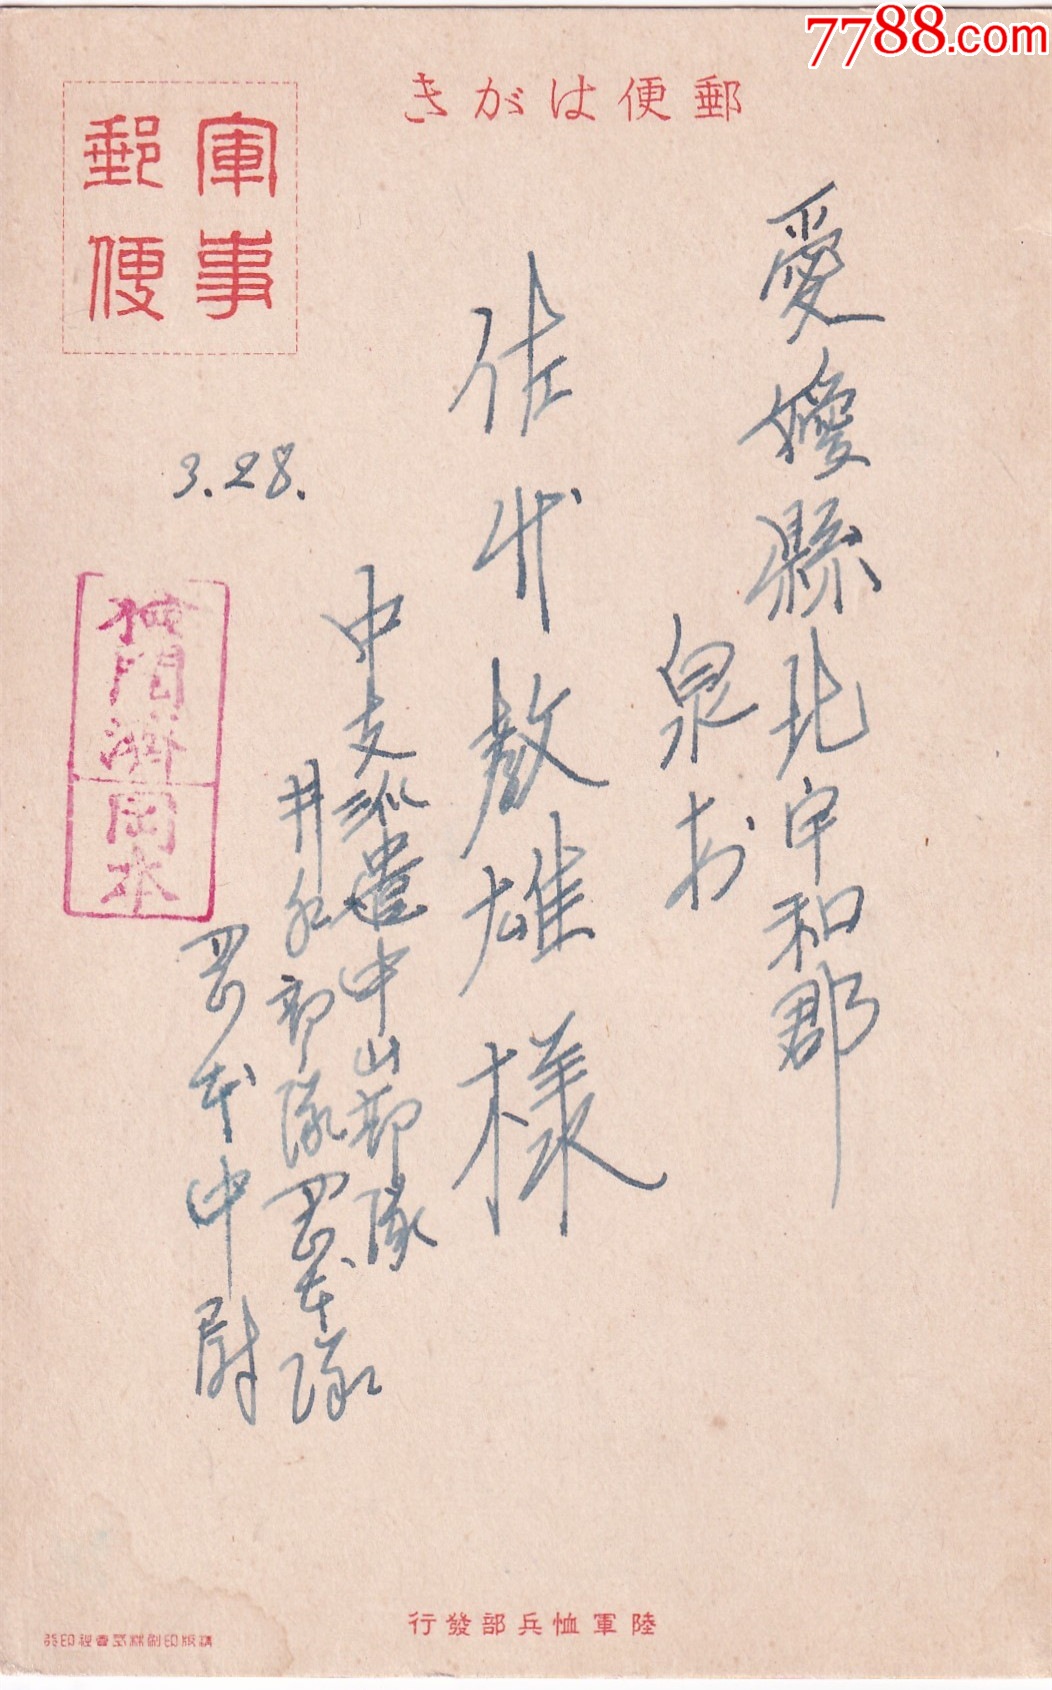 7788.com
郵便はがき
軍事
郵便
愛媛縣北宇和郡
泉村
佐代教雄様
3.28.
中支派遣中山部隊
井手部隊岡本隊
岡本中尉
検閲濟
岡本
陸軍恤兵部發行